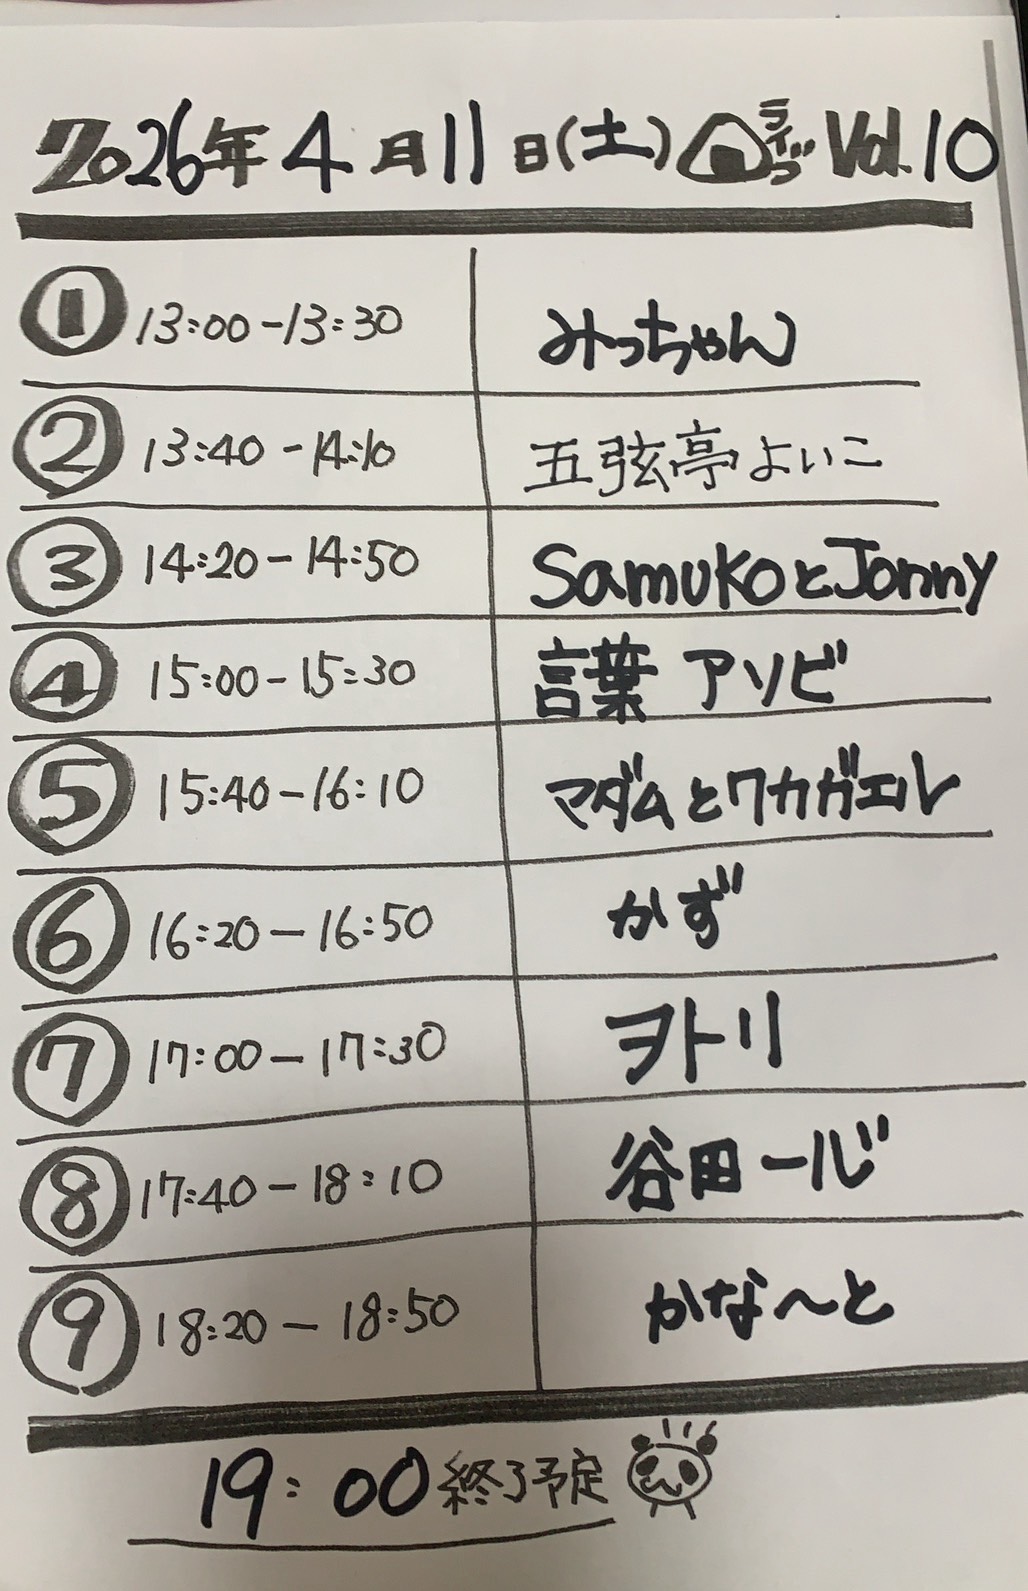 2026年4月11日(土)🍙ライブVol.10
① 13:00-13:30 みっちゃん
② 13:40-14:10 五弦亭よいこ
③ 14:20-14:50 SamukoとJonny
④ 15:00-15:30 言葉アソビ
⑤ 15:40-16:10 マダムとワカガエル
⑥ 16:20-16:50 かず
⑦ 17:00-17:30 ヲトリ
⑧ 17:40-18:10 谷田一ルビ
⑨ 18:20-18:50 かな〜と
19:00終了予定